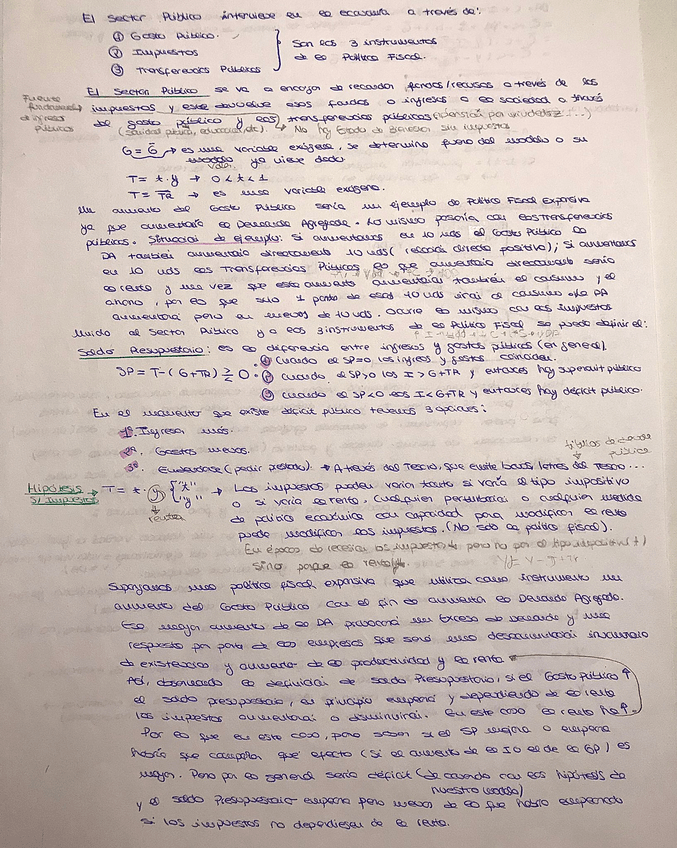 El Sector Público interviene en la economía a través de:
① Gasto Público.
② Impuestos
③ Transferencias Públicas
Son los 3 instrumentos
de la Política Fiscal.
El Sector Público se va a encargar de recaudar fondos/recursos a través de los
Fuente
fundamental
de ingresos
públicos
impuestos y este devuelve esos fondos o ingresos a la sociedad a través
del gasto público y las transferencias públicas
(sanidad pública, educación, etc.) → No hay Estado de Bienestar sin impuestos
G = G̅ → es una variable exógena, se determina fuera del modelo o su
valor ya viene dado
T = t · y → 0 < t < 1
T̅R̅ → es una variable exógena.
Un aumento del Gasto Público sería un ejemplo de Política Fiscal Expansiva
ya que aumentaría la Demanda Agregada. Lo mismo pasaría con las Transferencias
públicas. Situación de ejemplo: Si aumentamos en 10 uds el Gasto Público la
DA también aumentaría directamente 10 uds (relación directa positiva); Si aumentamos
en 10 uds las Transferencias Públicas lo que aumentaría directamente sería
la renta y una vez que esta aumenta aumentarían también el consumo y el
ahorro, por lo que solo 1 parte de esas 10 uds irían al consumo y la DA
aumentaría pero en menos de 10 uds. Ocurre lo mismo con los impuestos
Unido al Sector Público y a los 3 instrumentos de la Política Fiscal se puede definir el:
Saldo Presupuestario: es la diferencia entre ingresos y gastos públicos (en general).
SP = T - (G + TR) ⋛ 0
① Cuando el SP=0 los ingresos y gastos coinciden.
② Cuando el SP>0 los I > G+TR y entonces hay superávit público
③ Cuando el SP<0 los I < G+TR y entonces hay déficit público.
En el momento que existe déficit público tenemos 3 opciones:
1ª. Ingresar más.
2ª. Gastar menos.
3ª. Endeudarse (pedir prestado) → A través del Tesoro, que emite bonos, letras del Tesoro...
Hipótesis
s/ Impuestos
T = t · y
"t"
"y"
renta
→ Los impuestos pueden variar tanto si varía el tipo impositivo
o si varía la renta, cualquier perturbación o cualquier medida
de política económica con capacidad para modificar la renta
puede modificar los impuestos. (No solo la política fiscal).
En épocas de recesión los impuestos ↓ pero no por el tipo impositivo (t)
sino porque la renta ↓.
Supongamos una política fiscal expansiva que utiliza como instrumento un
aumento del Gasto Público con el fin de aumentar la Demanda Agregada.
Ese mayor aumento de la DA provocará un Exceso de Demanda y una
respuesta por parte de las empresas que será una desacumulación involuntaria
de existencias y aumento de la productividad y la renta
Así, observando la definición de Saldo Presupuestario, si el Gasto Público ↑
el saldo presupuestario, en principio empeora y dependiendo de la renta
los impuestos aumentarán o disminuirán. En este caso la renta ha ↑.
Por lo que en este caso, para saber si el SP mejora o empeora
habría que comparar qué efecto (si el aumento de la T o el de la GP) es
mayor. Pero por lo general sería déficit (de acuerdo con las hipótesis de
nuestro modelo)
y el saldo Presupuestario empeora pero menos de lo que habría empeorado
si los impuestos no dependiesen de la renta.